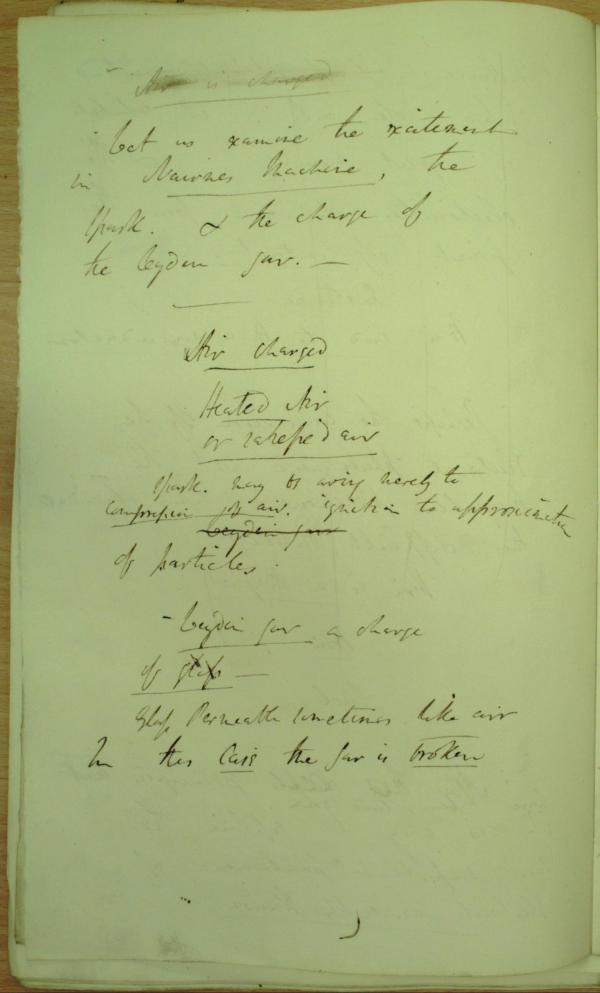 Air is charged
Let us examine the excitement
in Nairnes Machine, the
spark. & the charge of
the leyden jar. —
Air charged
Heated Air
or rarefied air
spark. may be owing merely to
compression of air. ignition to approximation
Leyden jar
of particles.
- Leyden jar a charge
of glass —
glass Permeable sometimes like air
In this Case the jar is broken